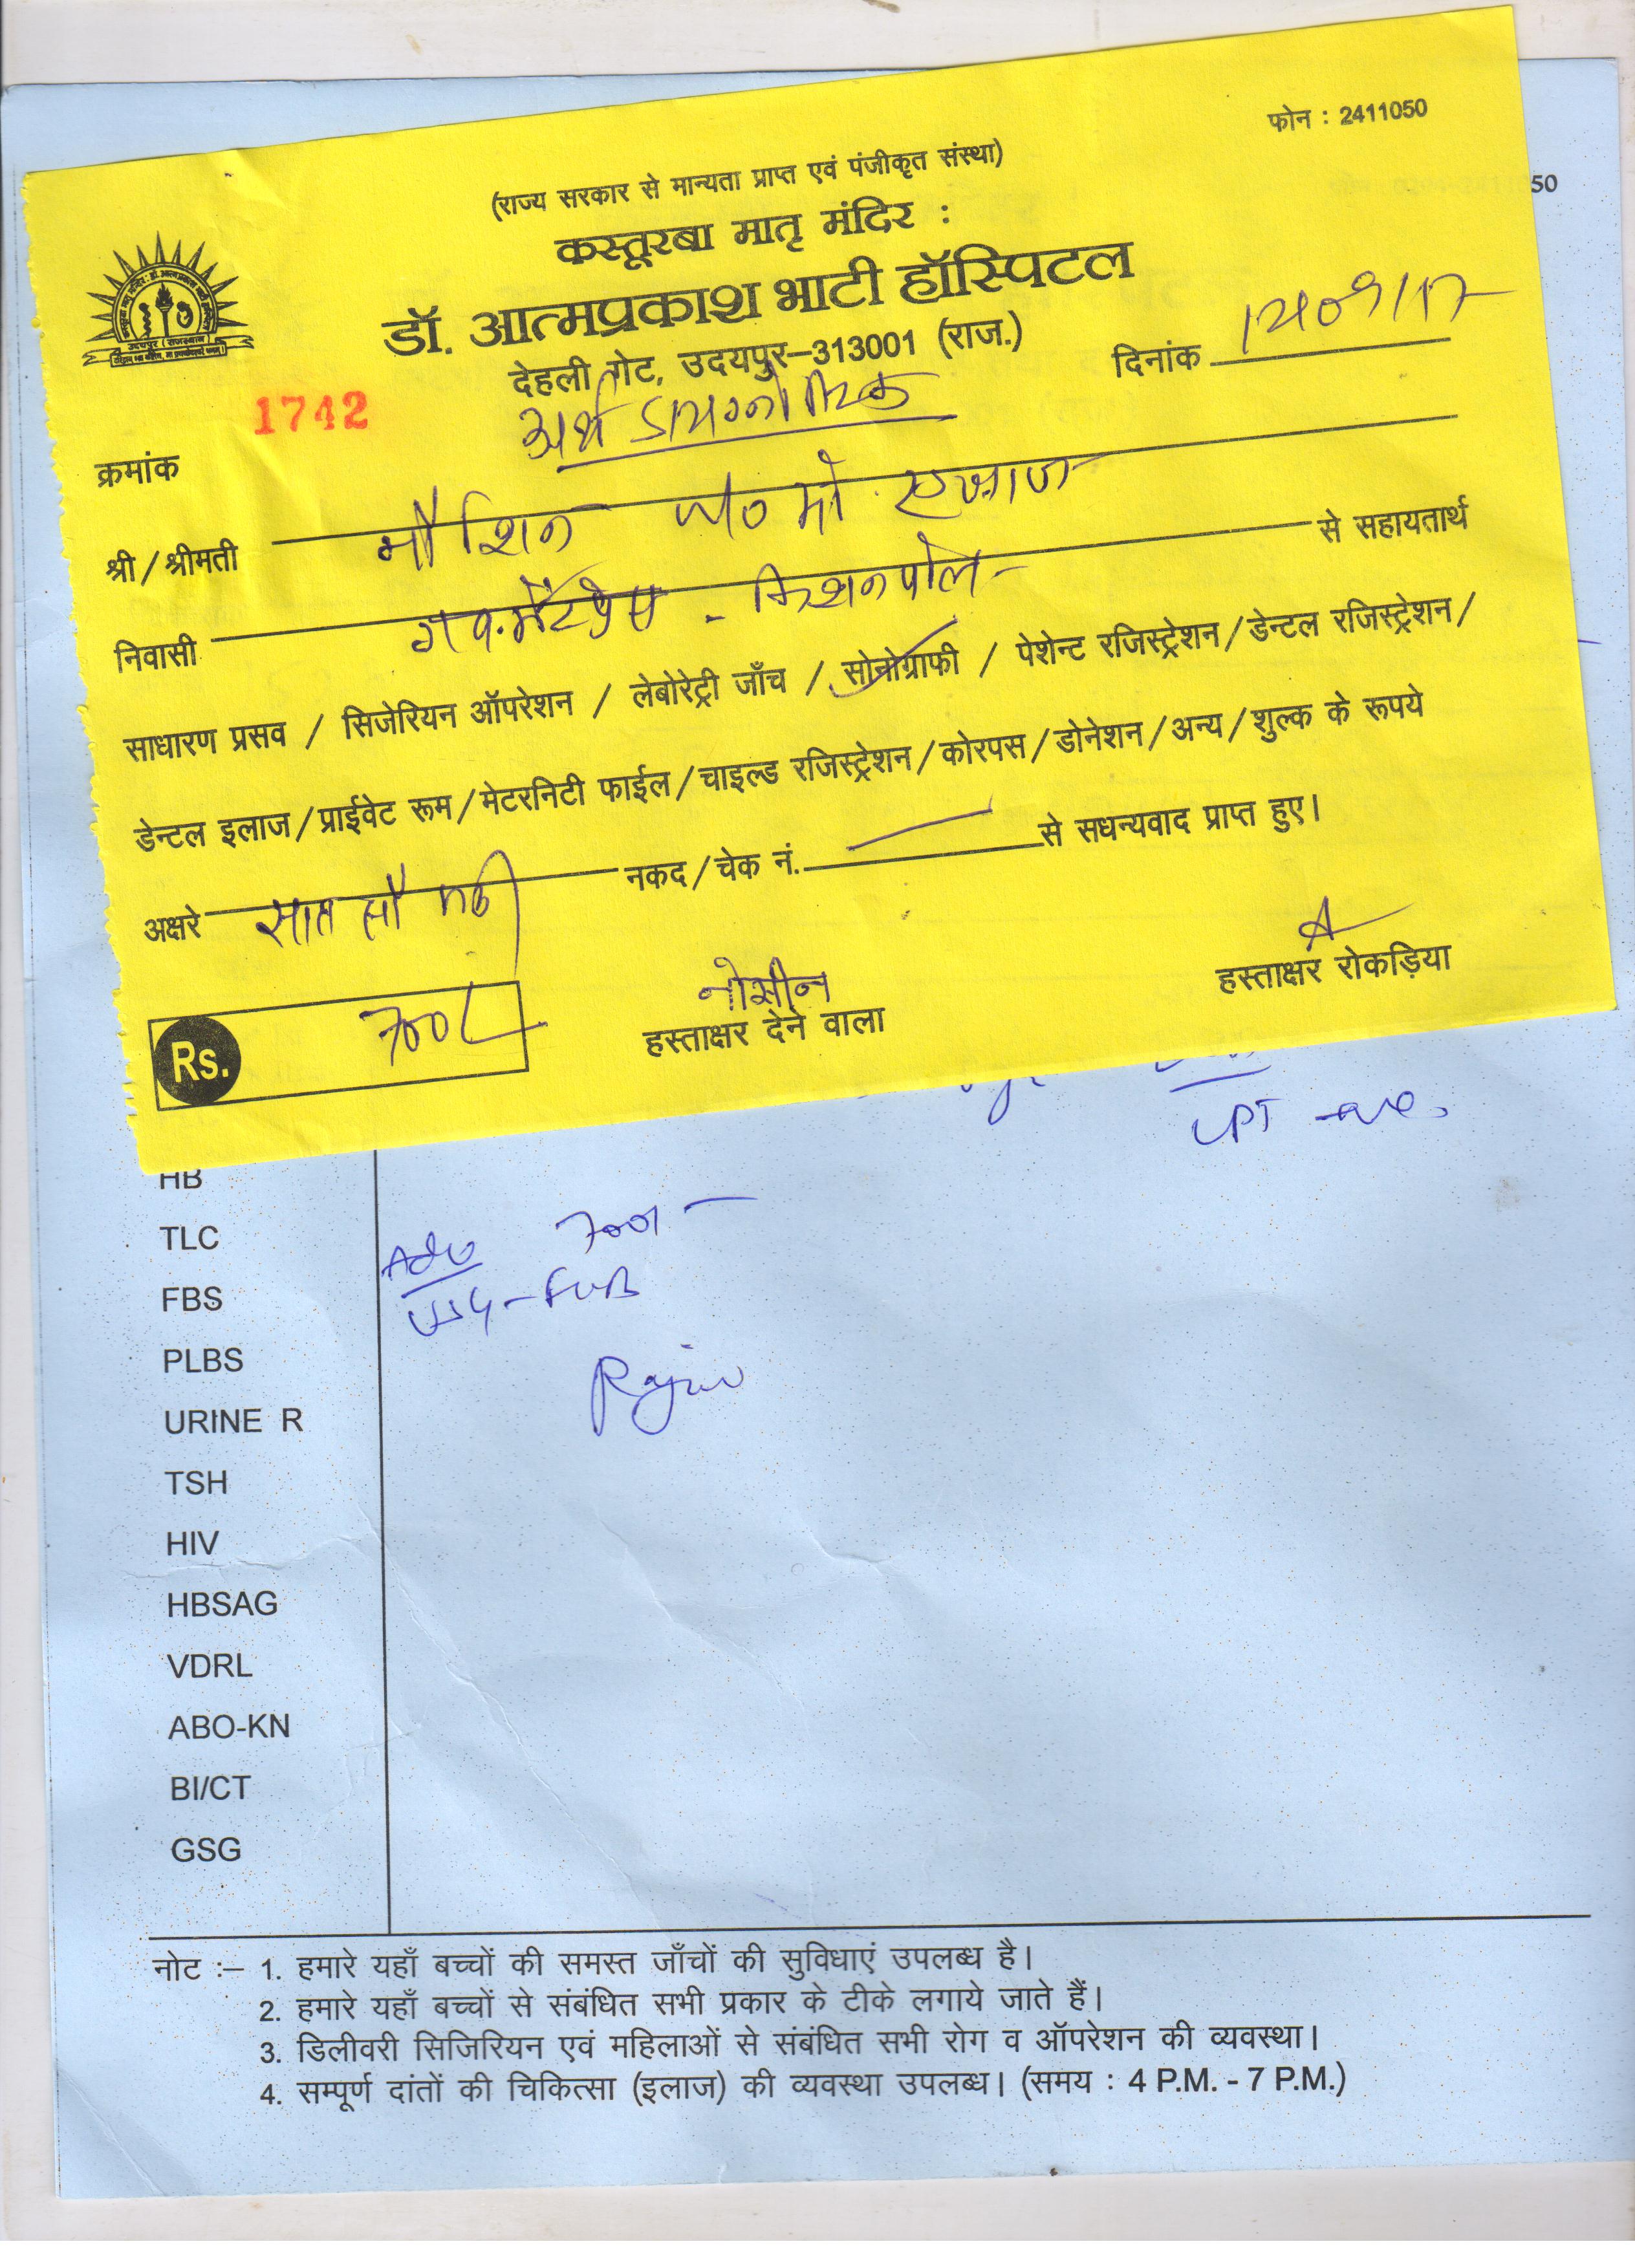 फोन : 2411050
50
(राज्य सरकार से मान्यता प्राप्त एवं पंजीकृत संस्था)
कस्तूरबा मातृ मंदिर :
डॉ. आत्मप्रकाश भाटी हॉस्पिटल
देहली गेट, उदयपुर–313001 (राज.)
उदयपुर (राजस्थान)
दिनांक
1742
अर्थ डायग्नोस्टिक
क्रमांक
श्री/श्रीमती नौशिन W/o मो.
निवासी किशनपोल से सहायतार्थ
साधारण प्रसव / सिजेरियन ऑपरेशन / लेबोरेट्री जाँच / सोनोग्राफी / पेशेन्ट रजिस्ट्रेशन/डेन्टल रजिस्ट्रेशन/
डेन्टल इलाज/प्राईवेट रूम/मेटरनिटी फाईल/चाइल्ड रजिस्ट्रेशन/कोरपस/डोनेशन/अन्य/शुल्क के रूपये
अक्षरे सात सौ नकद/चेक नं. से सधन्यवाद प्राप्त हुए।
Rs. 700/-
नोसीन
हस्ताक्षर देने वाला
हस्ताक्षर रोकड़िया
UPT -ve.
HB
TLC
Adv 700/-
FBS
USG -
PLBS
URINE R
TSH
HIV
HBSAG
VDRL
ABO-KN
BI/CT
GSG
नोट :– 1. हमारे यहाँ बच्चों की समस्त जाँचों की सुविधाएं उपलब्ध है।
2. हमारे यहाँ बच्चों से संबंधित सभी प्रकार के टीके लगाये जाते हैं।
3. डिलीवरी सिजिरियन एवं महिलाओं से संबंधित सभी रोग व ऑपरेशन की व्यवस्था।
4. सम्पूर्ण दांतों की चिकित्सा (इलाज) की व्यवस्था उपलब्ध। (समय : 4 P.M. - 7 P.M.)